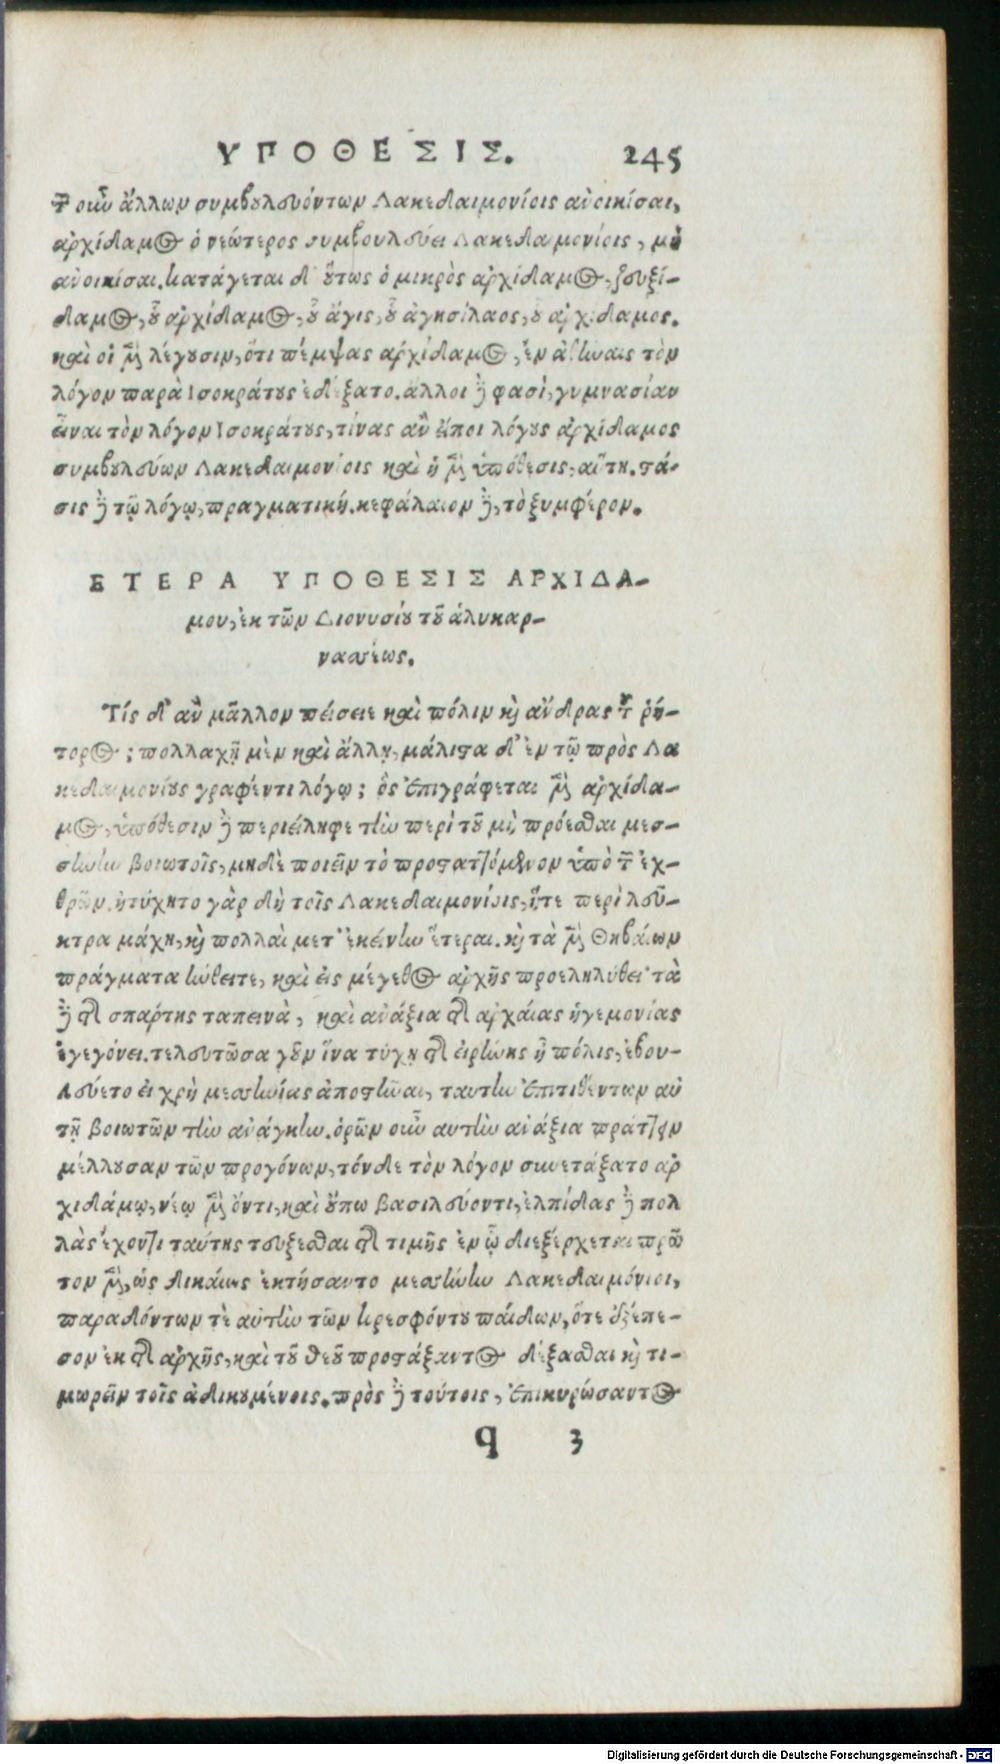 ΥΠΟΘΕΣΙΣ. 245
τῶν οὖν ἄλλων συμβουλευόντων Λακεδαιμονίοις ἀνοικίσαι,
ἀρχίδαμος ὁ νεώτερος συμβουλεύει Λακεδαιμονίοις, μὴ
ἀνοικίσαι. κατάγεται δ' οὕτως ὁ μικρὸς ἀρχίδαμος, ζευξί-
δαμος, οὗ ἀρχίδαμος, οὗ ἄγις, οὗ ἀγησίλαος, οὗ ἀρχίδαμος.
καὶ οἱ μὲν λέγουσιν, ὅτι πέμψας ἀρχίδαμος, ἐν ἀθήναις τὸν
λόγον παρὰ Ισοκράτους ἐδέξατο. ἄλλοι δὲ φασὶ, γυμνασίαν
εἶναι τὸν λόγον Ισοκράτους, τίνας ἂν εἴποι λόγους ἀρχίδαμος
συμβουλεύων Λακεδαιμονίοις καὶ ἡ μὲν ὑπόθεσις, αὕτη. στά-
σις δὲ τῷ λόγῳ, πραγματική. κεφάλαιον δὲ, τὸ ξυμφέρον.
ΕΤΕΡΑ ΥΠΟΘΕΣΙΣ ΑΡΧΙΔΑ-
μου, ἐκ τῶν Διονυσίου τοῦ ἁλικαρ-
νασσέως.
Τίς δ' ἂν μᾶλλον πείσειε καὶ πόλιν καὶ ἄνδρας τοῦ ῥή-
τορος; πολλαχῇ μὲν καὶ ἄλλῃ, μάλιστα δ' ἐν τῷ πρὸς Λα
κεδαιμονίους γραφέντι λόγῳ; ὃς ἐπιγράφεται μὲν ἀρχίδα-
μος, ὑπόθεσιν δὲ περιείληφε τὴν περὶ τοῦ μὴ πρόεσθαι μεσ-
σήνην βοιωτοῖς, μηδὲ ποιεῖν τὸ προσταττόμενον ὑπὸ τῶν ἐχ-
θρῶν. ἠτύχητο γὰρ δὴ τοῖς Λακεδαιμονίοις, ἥτε περὶ λεῦ-
κτρα μάχη, καὶ πολλαὶ μετ' ἐκείνην ἕτεραι. καὶ τὰ μὲν Θηβαίων
πράγματα ἤνθειτε, καὶ εἰς μέγεθος ἀρχῆς προεληλύθει τὰ
δὲ τῆς σπάρτης ταπεινὰ, καὶ ἀνάξια τῆς ἀρχαίας ἡγεμονίας
ἐγεγόνει. τελευτῶσα γοῦν ἵνα τύχῃ τῆς εἰρήνης ἡ πόλις, ἐβου-
λεύετο εἰ χρὴ μεσσηνίας ἀποστῆναι, ταύτην ἐπιτιθέντων αὐ
τῇ βοιωτῶν τὴν ἀνάγκην. ὁρῶν οὖν αὐτὴν ἀνάξια πράττειν
μέλλουσαν τῶν προγόνων, τόνδε τὸν λόγον συνετάξατο ἀρ
χιδάμῳ, νέῳ μὲν ὄντι, καὶ οὔπω βασιλεύοντι, ἐλπίδας δὲ πολ
λὰς ἔχοντι ταύτης τεύξεσθαι τῆς τιμῆς ἐν ᾧ διεξέρχεται πρῶ
τον μὲν, ὡς δικαίως ἐκτήσαντο μεσσήνην Λακεδαιμόνιοι,
παραδόντων τὲ αὐτὴν τῶν κρεσφόντου παίδων, ὅτε ἐξέπε-
σον ἐκ τῆς ἀρχῆς, καὶ τοῦ θεοῦ προστάξαντος δέξασθαι καὶ τι-
μωρεῖν τοῖς ἀδικουμένοις. πρὸς δὲ τούτοις, ἐπικυρώσαντος
q 3
Digitalisierung gefördert durch die Deutsche Forschungsgemeinschaft - DFG